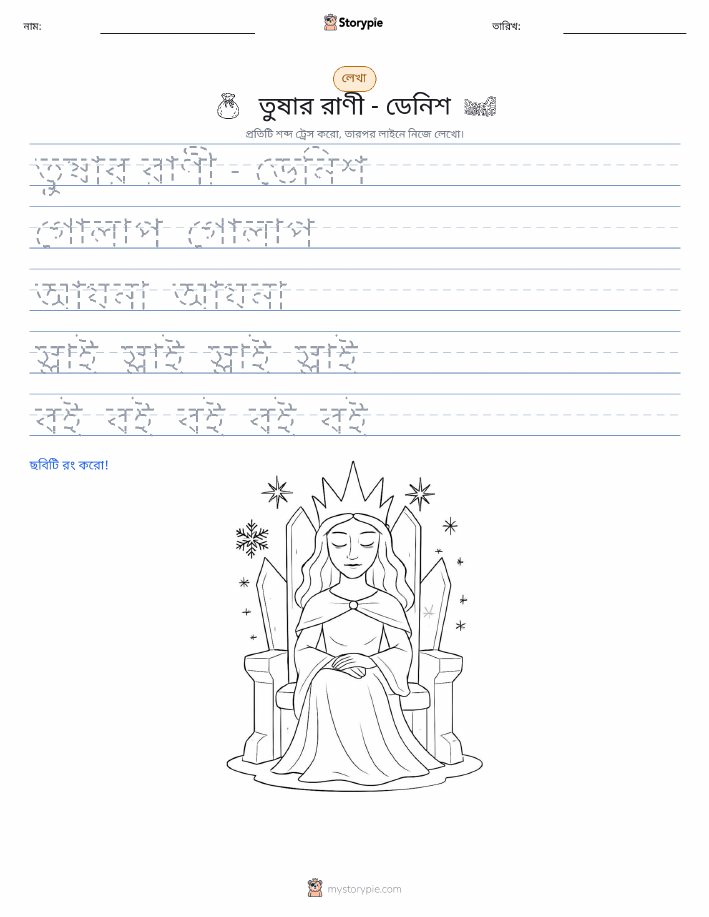 নাম:
Storypie
তারিখ:
লেখা
তুষার রাণী - ডেনিশ
প্রতিটি শব্দ ট্রেস করো, তারপর লাইনে নিজে লেখো।
তুষার রাণী - ডেনিশ
গোলাপ গোলাপ
আয়না আয়না
স্লাই স্লাই স্লাই স্লাই
বই বই বই বই বই
ছবিটি রং করো!
mystorypie.com